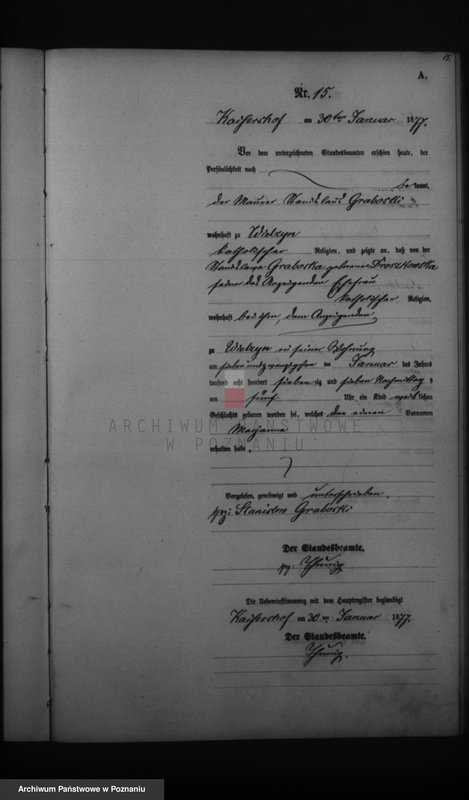 15.
A.
Nr. 15.
Kaisershof am 30ten Januar 1877.
Vor dem unterzeichneten Standesbeamten erschien heute, der
Persönlichkeit nach
bekannt,
der Maurer Graboski
wohnhaft zu Wielzyn
katholischer Religion, und zeigte an, daß von der
Graboska geborener Droszkowska
seiner des Anzeigenden Ehefrau
katholischer Religion,
wohnhaft bei ihm, dem Anzeigenden
zu Wielzyn in seiner Wohnung
am siebenundzwanzigsten Januar des Jahres
tausend acht hundert siebenzig und sieben Nachmittags
um fünf Uhr ein Kind weiblichen
Geschlechts geboren worden sei, welches den einen Vornamen
Maryanna
erhalten habe.
ARCHIWUM PAŃSTWOWE
W POZNANIU
Vorgelesen, genehmigt und unterschrieben.
gez: Stanislaw Graboski
Der Standesbeamte.
gez:
Die Uebereinstimmung mit dem Hauptregister beglaubigt
Kaisershof am 30 Januar 1877.
Der Standesbeamte.
Archiwum Państwowe w Poznaniu